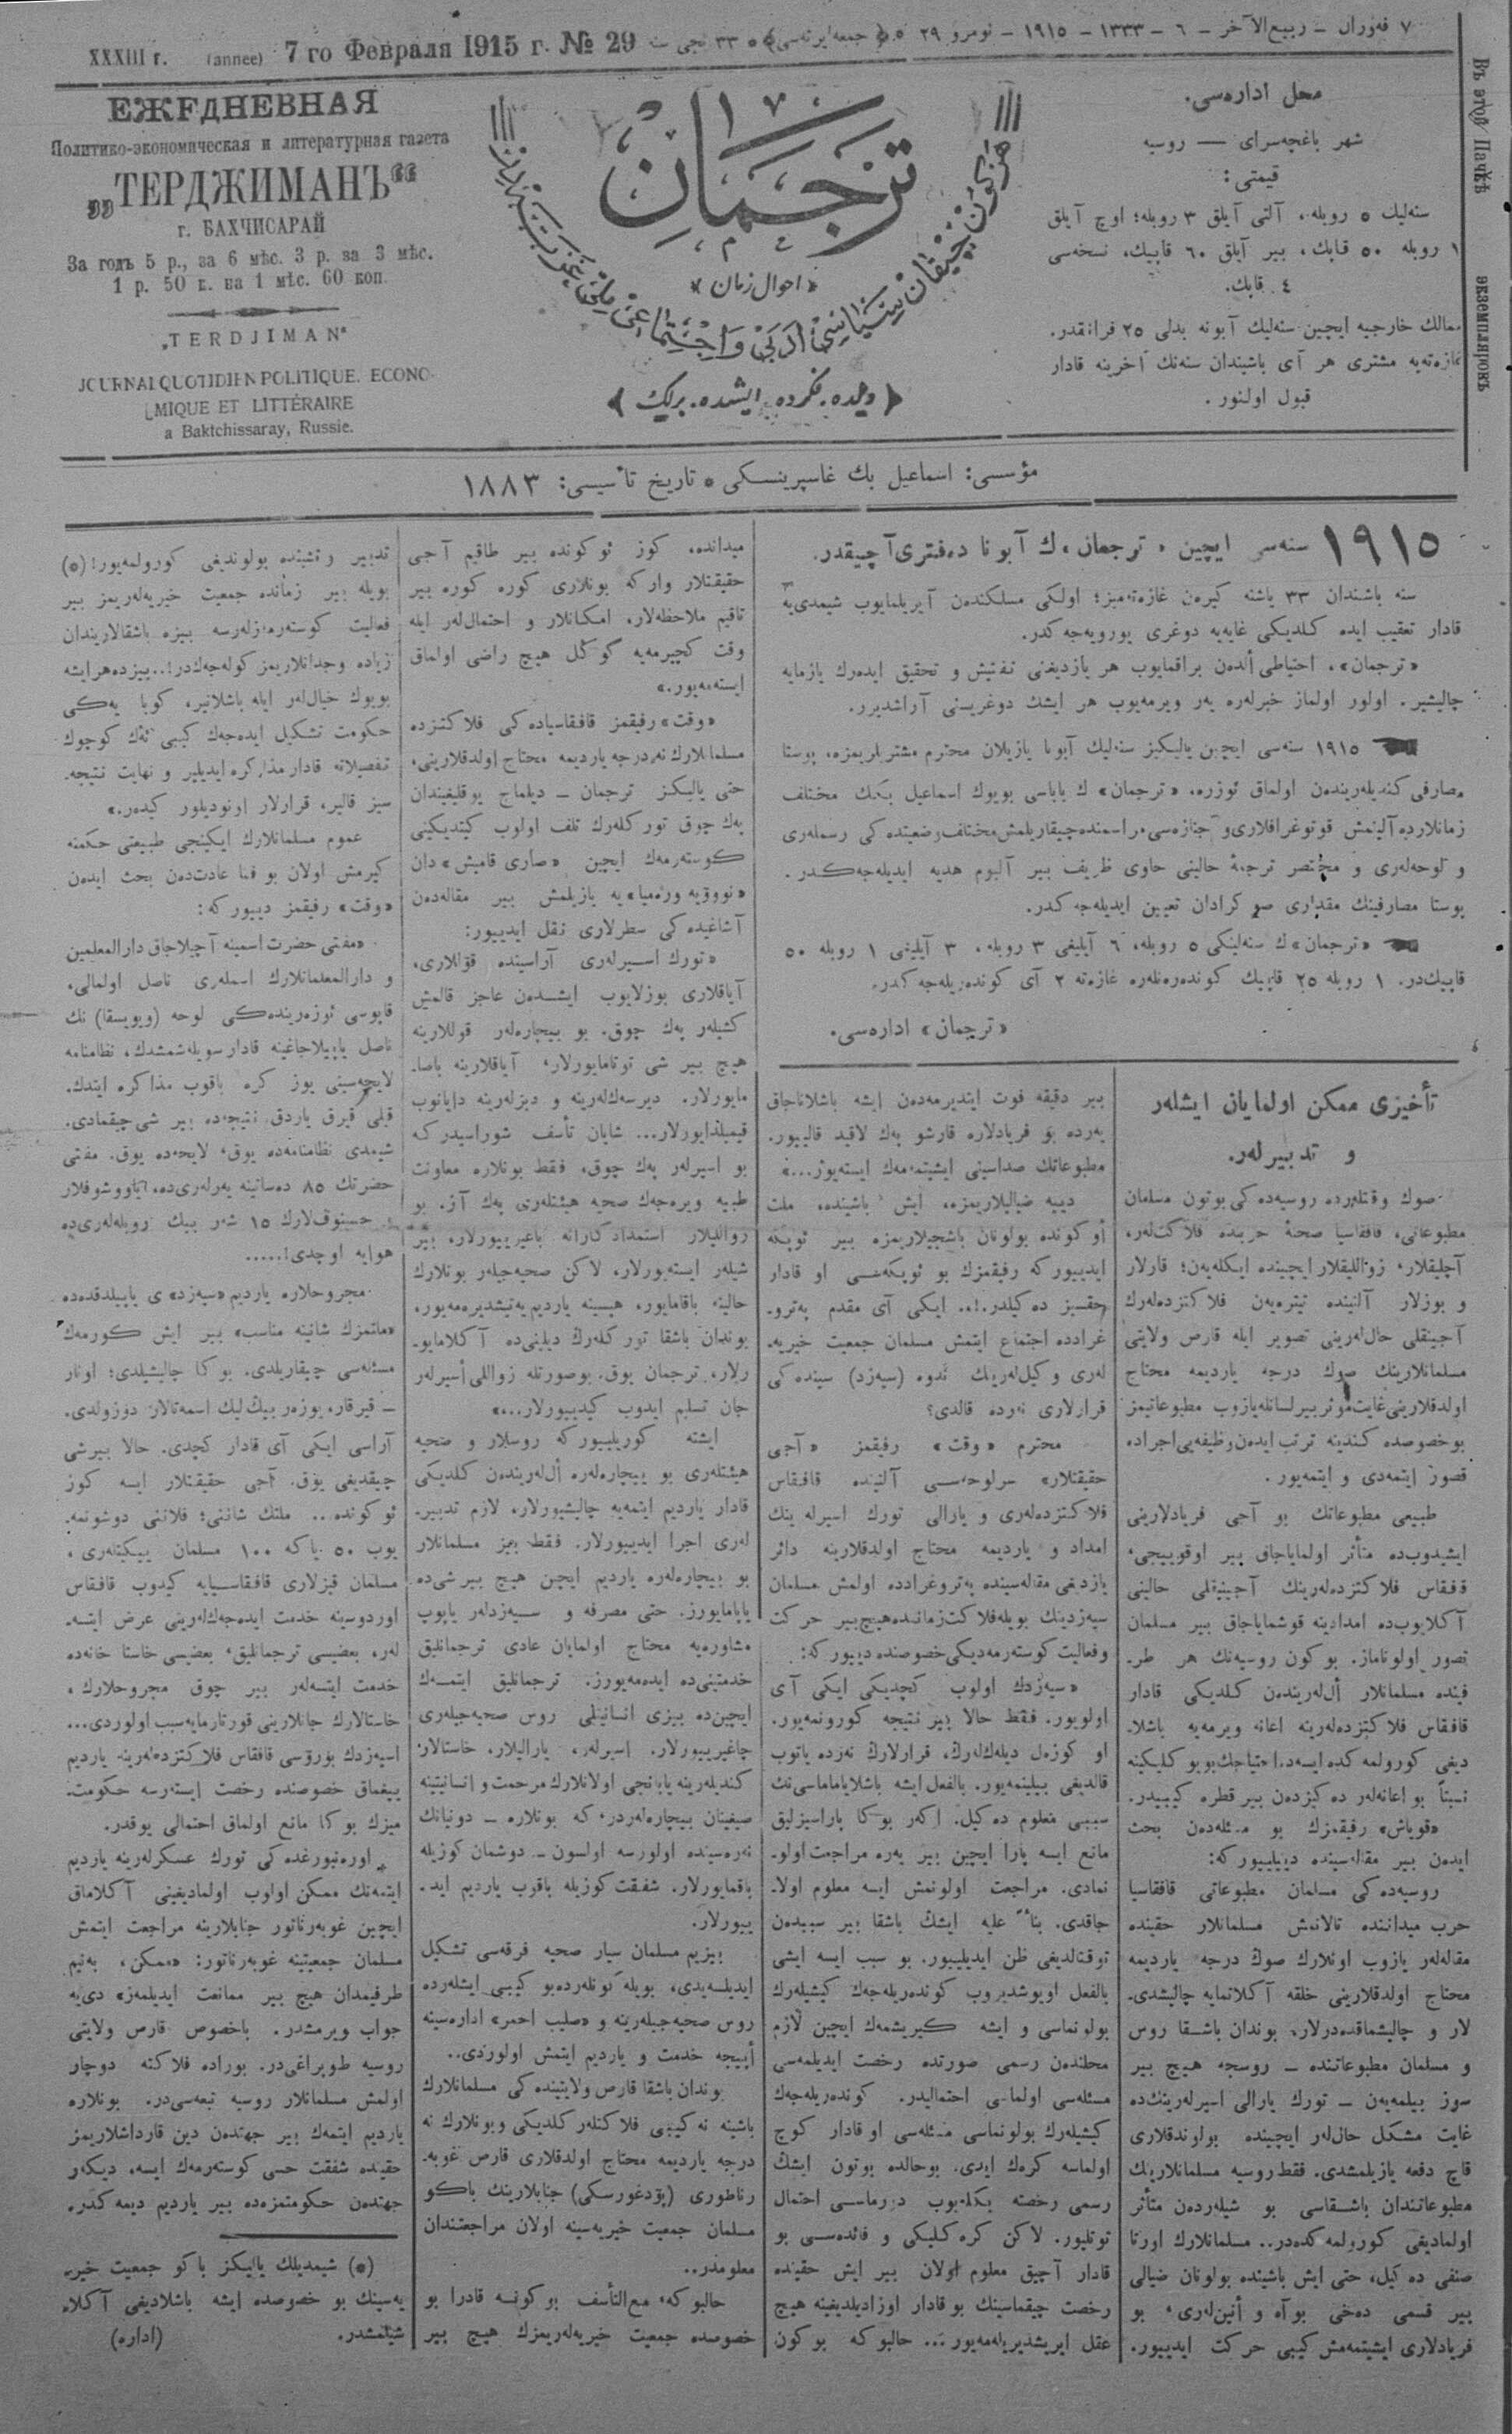 ۷ فەورال – ربیع‌الآخر – ۶ – ۱۳۳۳ – ۱۹۱۵ – نومرو ۲۹ (جمعه ایرته‌سی) ۳۳ نجی سنه
XXXIII г. (annee) 7 го Февраля 1915 г. № 29
ЕЖЕДНЕВНАЯ
Политико-экономическая и литературная газета
„ТЕРДЖИМАНЪ“
г. БАХЧИСАРАЙ
За годъ 5 р., за 6 мѣс. 3 р. за 3 мѣс.
1 р. 50 к. на 1 мѣс. 60 коп.
„TERDJIMAN“
JOURNAL QUOTIDIEN POLITIQUE. ECONO-
MIQUE ET LITTÉRAIRE
a Baktchissaray, Russie.
ترجمان
«احوال زمان»
هر كون چیقان سیاسی، ادبی و اجتماعی ملی غزته‌در
(دیلده. فكرده. ایشده. برلك)
محل اداره‌سی.
شهر باغچه‌سرای — روسیه
قیمتی:
سنه‌لیك ۵ روبله، آلتی آیلق ۳ روبله؛ اوچ آیلق
۱ روبله ۵۰ قاپك، بیر آیلق ۶۰ قاپیك، نسخه‌سی
۴ قاپك.
ممالك خارجیه ایچین سنه‌لیك آبونه بدلی ۲۵ فرانقدر.
غازه‌ته‌یه مشتری هر آی باشیندان سنه‌نك آخرینه قادار
قبول اولنور.
Въ этой Пачкѣ экземпляровъ
مؤسسی: اسماعیل بك غاسپرینسكی * تاریخ تأسیسی: ۱۸۸۳
۱۹۱۵ سنه‌سی ایچین «ترجمان»ك آبونا ده‌فتری آچیقدر.
سنه باشندان ۳۳ یاشنه كیره‌ن غازه‌ته‌میز؛ اولكی مسلكندن آیریلمایوب شیمدی‌یه
قادار تعقیب ایده كلدیكی غایه‌یه دوغری یورویه‌جه‌كدر.
«ترجمان»، احتیاطی ألدن براقمایوب هر یازدیغنی تفتیش و تحقیق ایده‌رك یازمایه
چالیشیر. اولور اولماز خبرله‌ره یه‌ر ویرمه‌یوب هر ایشك دوغریسنی آراشدیرر.
۱۹۱۵ سنه‌سی ایچین یالیكیز سنه‌لیك آبونا یازیلان محترم مشتریلریمزه، پوستا
مصارفی كندیله‌ریندن اولماق ئوزره، «ترجمان»ك باباسی بویوك اسماعیل بكك مختلف
زمانلارده آلینمش فوتوغرافلاری و جنازه‌سی مراسمنده چیقاریلمش مختلف وضعیتده كی رسمله‌ری
و لوحه‌له‌ری و مختصر ترجمهٔ حالینی حاوی ظریف بیر آلبوم هدیه ایدیله‌جه‌كدر.
پوستا مصارفینك مقداری صوكرادان تعیین ایدیله‌جه‌كدر.
«ترجمان»ك سنه‌لیكی ۵ روبله، ۶ آیلیغی ۳ روبله، ۳ آیلیغی ۱ روبله ۵۰
قاپیك‌در. ۱ روبله ۲۵ قاپیك كونده‌ره‌نله‌ره غازه‌ته ۲ آی كونده‌ریله‌جه‌كدر.
«ترجمان» اداره‌سی.
تأخیری ممكن اولمایان ایشله‌ر
و تدبیرله‌ر.
صوك وقتله‌رده روسیه‌ده كی بوتون مسلمان
مطبوعاتی، قافقاسیا صحنهٔ حربنده فلاكت‌له‌ر،
آچلیقلار، زواللیقلار ایچینده ایكله‌یه‌ن؛ قارلار
و بوزلار آلتینده تیتره‌یه‌ن فلاكتزده‌له‌رك
آجینقلی حال‌له‌رینی تصویر ایله قارص ولایتی
مسلمانلارینك صوك درجه یاردیمه محتاج
اولدقلارینی غایت مؤثر بیر لسانله یازوب مطبوعاتیمز
بو خصوصده كندینه ترتب ایده‌ن وظیفه‌یی اجراده
قصور ایتمه‌دی و ایتمه‌یور.
طبیعی مطبوعاتك بو آجی فریادلارینی
ایشیدوب‌ده متأثر اولمایاجاق بیر اوقوییجی،
قافقاس فلاكتزده‌له‌رینك آجینیقلی حالینی
آكلایوب‌ده امدادینه قوشمایاجاق بیر مسلمان
تصور اولوناماز. بو كون روسیه‌نك هر طر-
فینده مسلمانلار أل‌له‌ریندن كلدیكی قادار
قافقاس فلاكتزده‌له‌رینه اعانه ویرمه‌یه باشلا-
دیغی كورولمه‌كده ایسه‌ده، احتیاجك بویوكلیكینه
نسبتاً بو اعانه‌له‌ر ده‌كیزدن بیر قطره كیبیدر.
«قویاش» رفیقمزك بو مسئله‌دن بحث
ایده‌ن بیر مقاله‌سینده دییلیبوركه:
روسیه‌ده كی مسلمان مطبوعاتی قافقاسیا
حرب میداننده تالانمش مسلمانلار حقینده
مقاله‌له‌ر یازوب اونلارك صوك درجه یاردیمه
محتاج اولدقلارینی خلقه آكلاتمایه چالیشدی-
لار و چالیشماقده‌درلار. بوندان باشقا روس
و مسلمان مطبوعاتنده – روسجه هیچ بیر
سوز بیلمه‌یه‌ن – تورك یارالی اسیرله‌رینك‌ده
غایت مشكل حال‌له‌ر ایچینده بولوندقلاری
قاچ دفعه یازیلمشدی. فقط روسیه مسلمانلارینك
مطبوعاتندان باشقاسی بو شیله‌ردن متأثر
اولمادیغی كورولمه‌كده‌در.. مسلمانلارك اورتا
صنفی ده‌كیل، حتی ایش باشینده بولونان ضیالی
بیر قسمی ده‌خی بو آه و أنین‌له‌ری، بو
فریادلاری ایشیتمه‌مش كیبی حركت ایدییور.
بیر دقیقه فوت ایتدیرمه‌دن ایشه باشلاناجاق
یه‌رده بو فریادلاره قارشو په‌ك لاقید قالییور.
مطبوعاتك صداسینی ایشیتمه‌مك ایسته‌یور...»
دییه ضیالیلاریمزه، ایش باشینده، ملت
أوكونده بولونان باشچیلاریمزه بیر ئویكه
ایدییوركه رفیقمزك بو ئویكه‌سی او قادار
حقسیز ده‌كیلدر!.. ایكی آی مقدم په‌ترو-
غرادده اجتماع ایتمش مسلمان جمعیت خیریه-
له‌ری وكیل‌له‌رینك ندوه (سیه‌زد) سینده كی
قرارلاری نه‌رده قالدی؟
محترم «وقت» رفیقمز «آجی
حقیقتلار» سرلوحه‌سی آلتینده قافقاس
فلاكتزده‌له‌ری و یارالی تورك اسیرله‌رینك
امداد و یاردیمه محتاج اولدقلارینه دائر
یازدیغی مقاله‌سینده په‌تروغرادده اولمش مسلمان
سیه‌زدینك بویله فلاكت زماننده هیچ بیر حركت
وفعالیت كوسته‌رمه‌دیكی خصوصنده دییوركه:
«سیه‌زدك اولوب كچدیكی ایكی آی
اولویور. فقط حالا بیر نتیجه كورونمه‌یور.
او كوزه‌ل دیله‌ك‌له‌رك، قرارلارك نه‌رده یاتوب
قالدیغی بیلینمه‌یور. بالفعل ایشه باشلایاماماسی‌نك
سببی معلوم ده‌كیل. اكه‌ر بوكا پاراسیزلیق
مانع ایسه پارا ایچین بیر یه‌ره مراجعت اولو-
نمادی. مراجعت اولونمش ایسه معلوم اولا-
جاقدی. بناءً علیه ایشك باشقا بیر سببدن
توقتالدیغی ظن ایدیلییور. بو سبب ایسه ایشی
بالفعل اویوشدیروب كونده‌ریله‌جه‌ك كیشیله‌رك
بولونماسی و ایشه كیریشمه‌ك ایچین لازم
محلندن رسمی صورتده رخصت ایدیلمه‌سی
مسئله‌سی اولماسی احتمالیدر. كونده‌ریله‌جه‌ك
كیشیله‌رك بولونماسی مسئله‌سی او قادار كوچ
اولماسه كره‌ك ایدی. بوحالده بوتون ایشك
رسمی رخصته بكله‌یوب دورماسی احتمال
توتلیور. لاكن كره‌كلیكی و فائده‌سی بو
قادار آچیق معلوم اولان بیر ایش حقینده
رخصت چیقماسینك بو قادار اوزادیلدیغینه هیچ
عقل ایریشدیریله‌مه‌یور... حالبوكه بو كون
میدانده، كوز ئوكونده بیر طاقیم آجی
حقیقتلار واركه بونلاری كوره كوره بیر
تاقیم ملاحظه‌لار، امكانلار و احتمال‌له‌ر ایله
وقت كچیرمه‌یه گوكل هیچ راضی اولماق
ایسته‌مه‌یور.»
«وقت» رفیقمز قافقاسیاده كی فلاكتزده
مسلمانلارك نه‌درجه یاردیمه محتاج اولدقلارینی،
حتی یالیكیز ترجمان – دیلماج یوقلیغیندان
په‌ك چوق توركله‌رك تلف اولوب كیتدیكینی
كوسته‌رمه‌ك ایچین «صاری قامیش»دان
«نووویه وره‌میا»یه یازیلمش بیر مقاله‌دن
آشاغیده كی سطرلاری نقل ایدییور:
«تورك اسیرله‌ری آراسینده قوللاری،
آیاقلاری بوزلایوب ایشدن عاجز قالمش
كشیله‌ر په‌ك چوق. بو بیچاره‌له‌ر قوللارینه
هیچ بیر شی توتامایورلار، آیاقلارینه باصا-
مایورلار. دیرسه‌ك‌له‌رینه و دیزله‌رینه دایانوب
قیمیلدایورلار... شایان تأسف شوراسیدركه
بو اسیرله‌ر په‌ك چوق، فقط بونلاره معاونت
طبیه ویره‌جه‌ك صحیه هیئتله‌ری په‌ك آز. بو
زواللیلار استمدادكارانه باغیرییورلار، بیر
شیله‌ر ایسته‌یورلار، لاكن صحیه‌جیله‌ر بونلارك
حالینه باقامایور، هپسینه یاردیم یه‌تیشدیره‌مه‌یور،
بوندان باشقا توركله‌رك دیلینی‌ده آكلامایو-
رلار، ترجمان یوق. بوصورتله زواللی أسیرله‌ر
جان تسلیم ایدوب كیدییورلار...»
ایشته كوریلییوركه روسلار و صحیه
هیئتله‌ری بو بیچاره‌له‌ره أل‌له‌ریندن كلدیكی
قادار یاردیم ایتمه‌یه چالیشیورلار، لازم تدبیر-
له‌ری اجرا ایدییورلار. فقط بیز مسلمانلار
بو بیچاره‌له‌ره یاردیم ایچین هیچ بیر شی‌ده
یاپامایورز. حتی مصرفه و سیه‌زدله‌ر یاپوب
مشاوره‌یه محتاج اولمایان عادی ترجمانلیق
خدمتینی‌ده ایده‌مه‌یورز. ترجمانلیق ایتمه‌ك
ایچین‌ده بیزی انسانیتلی روس صحیه‌جیله‌ری
چاغیرییورلار. اسیرله‌ر، یارالیلار، خاستالار
كندیله‌رینه یابانجی اولانلارك مرحمت و انسانیتینه
صیغینان بیچاره‌له‌ردر، كه بونلاره – دونیانك
نه‌ره‌سینده اولورسه اولسون – دوشمان كوزیله
باقمایورلار. شفقت كوزیله باقوب یاردیم اید-
ییورلار.
بیزیم مسلمان سیار صحیه فرقه‌سی تشكیل
ایدیلسه‌یدی، بویله كونله‌رده بو كیبی ایشله‌رده
روس صحیه‌جیله‌رینه و «صلیب احمر» اداره‌سینه
أییجه خدمت و یاردیم ایتمش اولوردی..
بوندان باشقا قارص ولایتینده كی مسلمانلارك
باشینه نه كیبی فلاكتله‌ر كلدیكی و بونلارك نه
درجه یاردیمه محتاج اولدقلاری قارص غوبه-
رناطوری (پودغورسكی) جنابلارینك باكو
مسلمان جمعیت خیریه‌سینه اولان مراجعتندان
معلومدر..
حالبوكه، مع‌التأسف بو كونه قادار بو
خصوصده جمعیت خیریه‌له‌ریمزك هیچ بیر
تدبیر و تشبثده بولوندیغی كورولمه‌یور! (*)
بویله بیر زمانده جمعیت خیریه‌له‌ریمز بیر
فعالیت كوسته‌رمه‌زله‌رسه بیزه باشقالاریندان
زیاده وجدانلاریمز كوله‌جه‌كدر!.. بیزده هر ایشه
بویوك خیال‌له‌ر ایله باشلانیر، كویا یه‌كی
حكومت تشكیل ایده‌جه‌ك كیبی ئه‌ك كوچوك
تفصیلاته قادار مذاكره ایدیلیر و نهایت نتیجه-
سیز قالیر، قرارلار اونودیلور كیده‌ر.»
عموم مسلمانلارك ایكینجی طبیعتی حكمنه
كیرمش اولان بو فنا عادت‌دن بحث ایده‌ن
«وقت» رفیقمز دییوركه:
«مفتی حضرت اسمینه آچیلاجاق دارالمعلمین
و دارالمعلماتلارك اسمله‌ری ناصل اولمالی،
قاپوسی ئوزه‌رینده‌كی لوحه (ویویسقا) نك
ناصل یاپیلاجاغینه قادار سویله‌شمشدك، نظامنامه
لایحه‌سینی یوز كره باقوب مذاكره ایتدك.
قیلی قیرق یاردق. نتیجه‌ده بیر شی چیقمادی.
شیمدی نظامنامه‌ده یوق، لایحه‌ده یوق. مفتی
حضرتك ۸۵ ده‌ساتینه یه‌رله‌ری‌ده،
حسینوف‌لارك ۱۵ شه‌ر بیك روبله‌له‌ری‌ده
هوایه اوچدی!.....
مجروحلاره یاردیم «سیه‌زد»ی یاپیلدقده‌ده
«ملتمزك شانینه مناسب» بیر ایش كورمه‌ك
مسئله‌سی چیقاریلدی. بوكا چالیشیلدی؛ اونار
– قیرقار، یوزه‌ر بیك‌لیك اسمه‌تالار دوزولدی.
آراسی ایكی آی قادار كچدی. حالا بیرشی
چیقدیغی یوق. آجی حقیقتلار ایسه كوز
ئوكونده.. ملتك شاننی؛ فلاننی دوشونمه-
یوب ۵۰ یاكه ۱۰۰ مسلمان ییكیتله‌ری،
مسلمان قیزلاری قافقاسیایه كیدوب قافقاس
اوردوسینه خدمت ایده‌جه‌ك‌له‌رینی عرض ایتسه-
له‌ر، بعضیسی ترجمانلیق، بعضیسی خاستا خانه‌ده
خدمت ایتسه‌له‌ر بیر چوق مجروحلارك،
خاستالارك جانلارینی قورتارمایه سبب اولوردی...
سیه‌زدك بوروسی قافقاس فلاكتزده‌له‌رینه یاردیم
ییغماق خصوصنده رخصت ایسته‌رسه حكومت-
میزك بوكا مانع اولماق احتمالی یوقدر.
اوره‌نبورغده كی تورك عسكرله‌رینه یاردیم
ایتمه‌نك ممكن اولوب اولمادیغینی آكلاماق
ایچین غوبه‌رناتور جنابلارینه مراجعت ایتمش
مسلمان جمعیتینه غوبه‌رناتور: «ممكن، به‌نیم
طرفیمدان هیچ بیر ممانعت ایدیلمه‌ز» دی‌یه
جواب ویرمشدر. باخصوص قارص ولایتی
روسیه طوپراغی‌در. بوراده فلاكته دوچار
اولمش مسلمانلار روسیه تبعه‌سی‌در. بونلاره
یاردیم ایتمه‌ك بیر جهتدن دین قارداشلاریمز
حقینده شفقت حسی كوسته‌رمه‌ك ایسه، دیكه‌ر
جهتدن حكومتمزه‌ده بیر یاردیم دیمه‌كدر.
(*) شیمدیلك یالیكز باكو جمعیت خیر-
یه‌سینك بو خصوصده ایشه باشلادیغی آكلا-
شیلمشدر. (اداره)